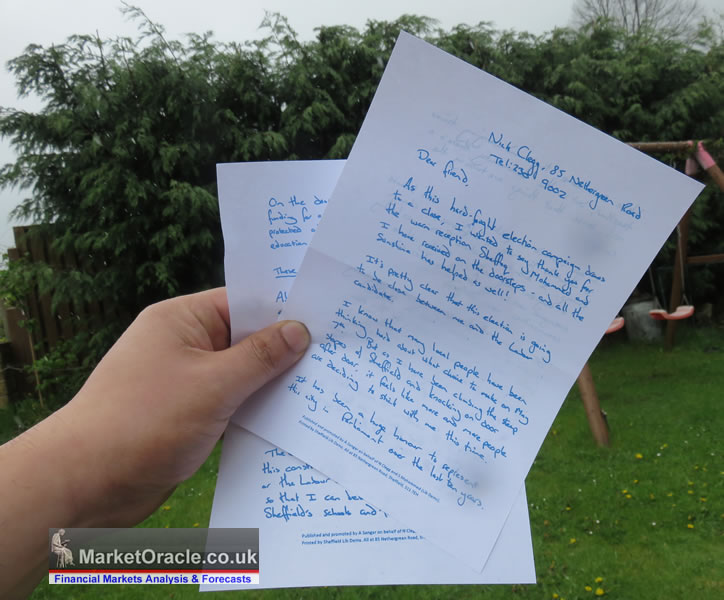 Nick Clegg: 85 Nethergreen Road
Tel: 230 9002
Dear friend,
As this hard-fought election campaign draws
to a close, I wanted to say thank you for
the warm reception Shaffaq Mohammed and
I have received on the doorsteps - and all the
Sunshine has helped as well!
It's pretty clear that this election is going
to be close between me and the Labour
candidate.
I know that many local people have been
thinking hard about what choice to make on May
7th. But as I have been climbing the steep
slopes of Sheffield and knocking on door
after door, it feels like more and more people
are deciding to stick with me this time.
It has been a huge honour to represent
this city in Parliament over the last ten years.
Published and promoted by A Sangar on behalf of N Clegg and S Mohammed (Lib Dems).
Printed by Sheffield Lib Dems. All at 85 Nethergreen Road, Sheffield, S11 7EH
On the
funding for
protected
education
These
Al
The
this const
or the Labour
so that I can be
Sheffield's schools and
Published and promoted by A Sangar on behalf of N Clegg
Printed by Sheffield Lib Dems. All at 85 Nethergreen Road,
MarketOracle.co.uk
Financial Markets Analysis & Forecasts